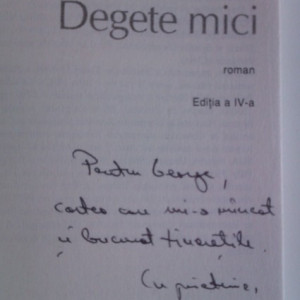 Degete mici
roman
Ediția a IV-a
Pentru George,
cartea care mi-a mâncat
și bucurat tinerețile.
Cu prietenie,